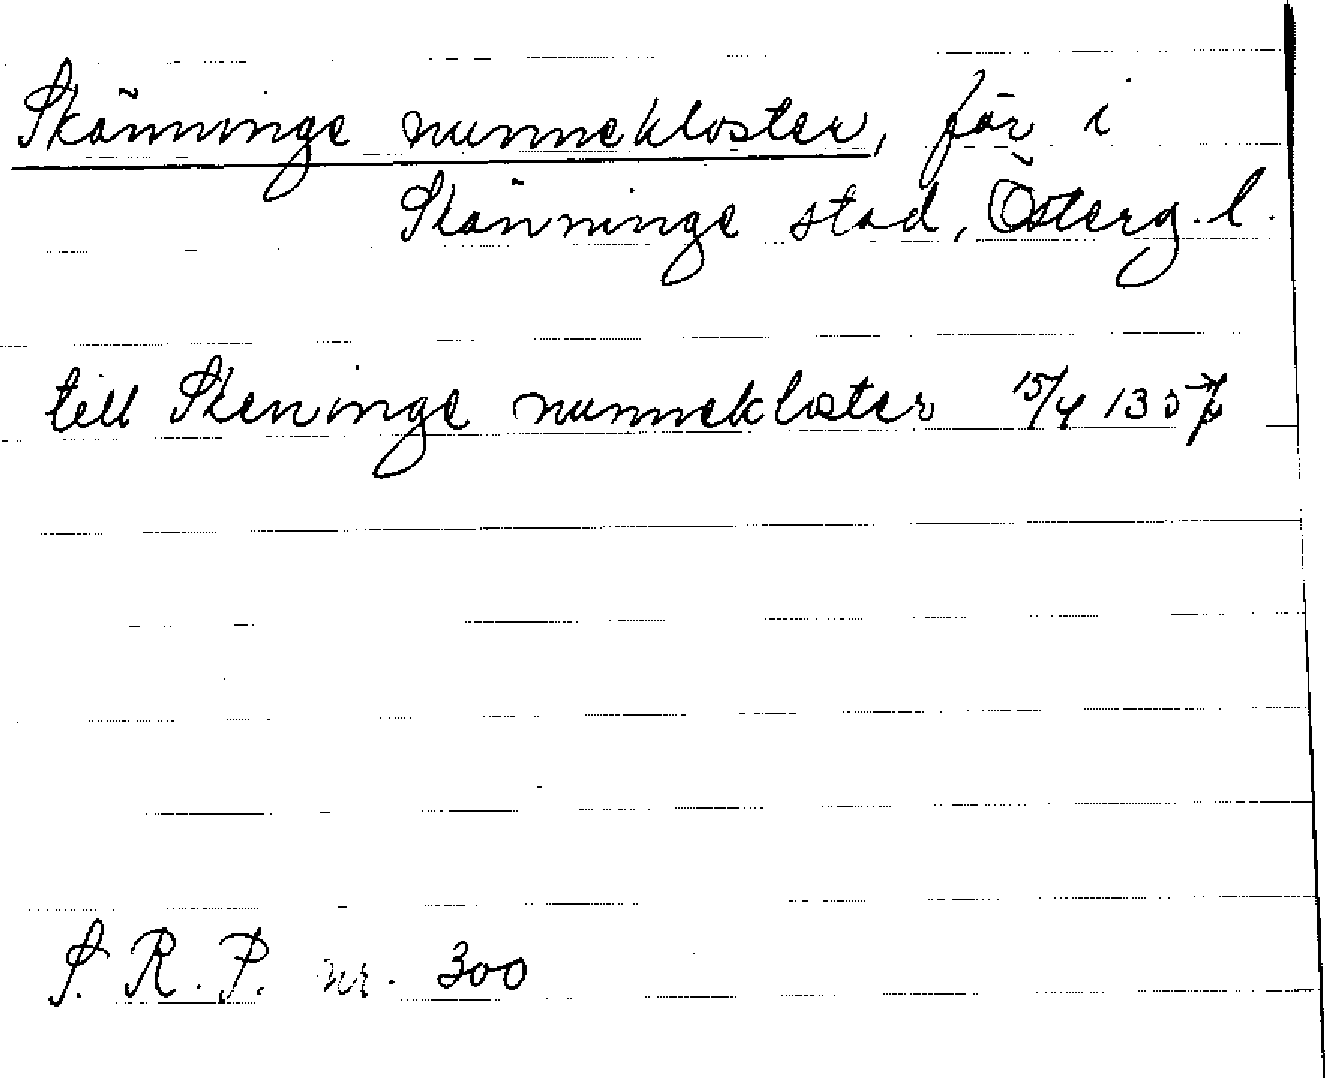 Skänninge nunnekloster, för i
Skänninge stad, Österg. l.
till Skeninge nunnekloster 15/4 1357
S. R. P. nr. 300